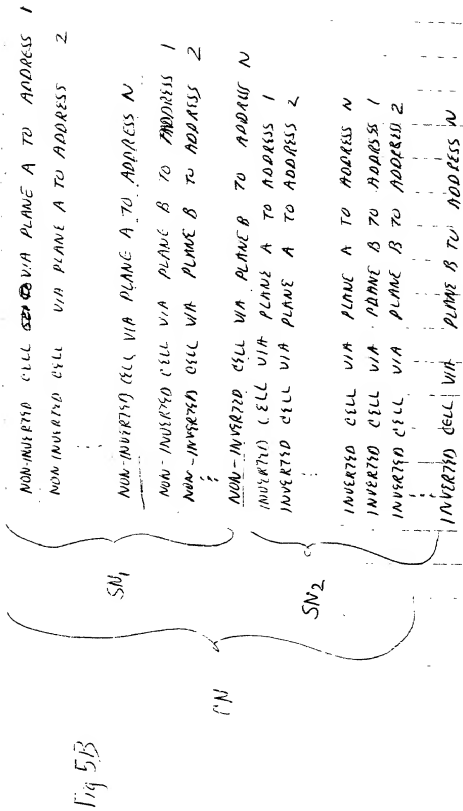 NON-INVERTED CELL VIA PLANE A TO ADDRESS 1
NON INVERTED CELL VIA PLANE A TO ADDRESS 2
⋮
NON-INVERTED CELL VIA PLANE A TO ADDRESS N
NON-INVERTED CELL VIA PLANE B TO ADDRESS 1
NON-INVERTED CELL VIA PLANE B TO ADDRESS 2
⋮
NON-INVERTED CELL VIA PLANE B TO ADDRESS N
INVERTED CELL VIA PLANE A TO ADDRESS 1
INVERTED CELL VIA PLANE A TO ADDRESS 2
⋮
INVERTED CELL VIA PLANE A TO ADDRESS N
INVERTED CELL VIA PLANE B TO ADDRESS 1
INVERTED CELL VIA PLANE B TO ADDRESS 2
⋮
INVERTED CELL VIA PLANE B TO ADDRESS N
SN1
SN2
CN
Fig 5B